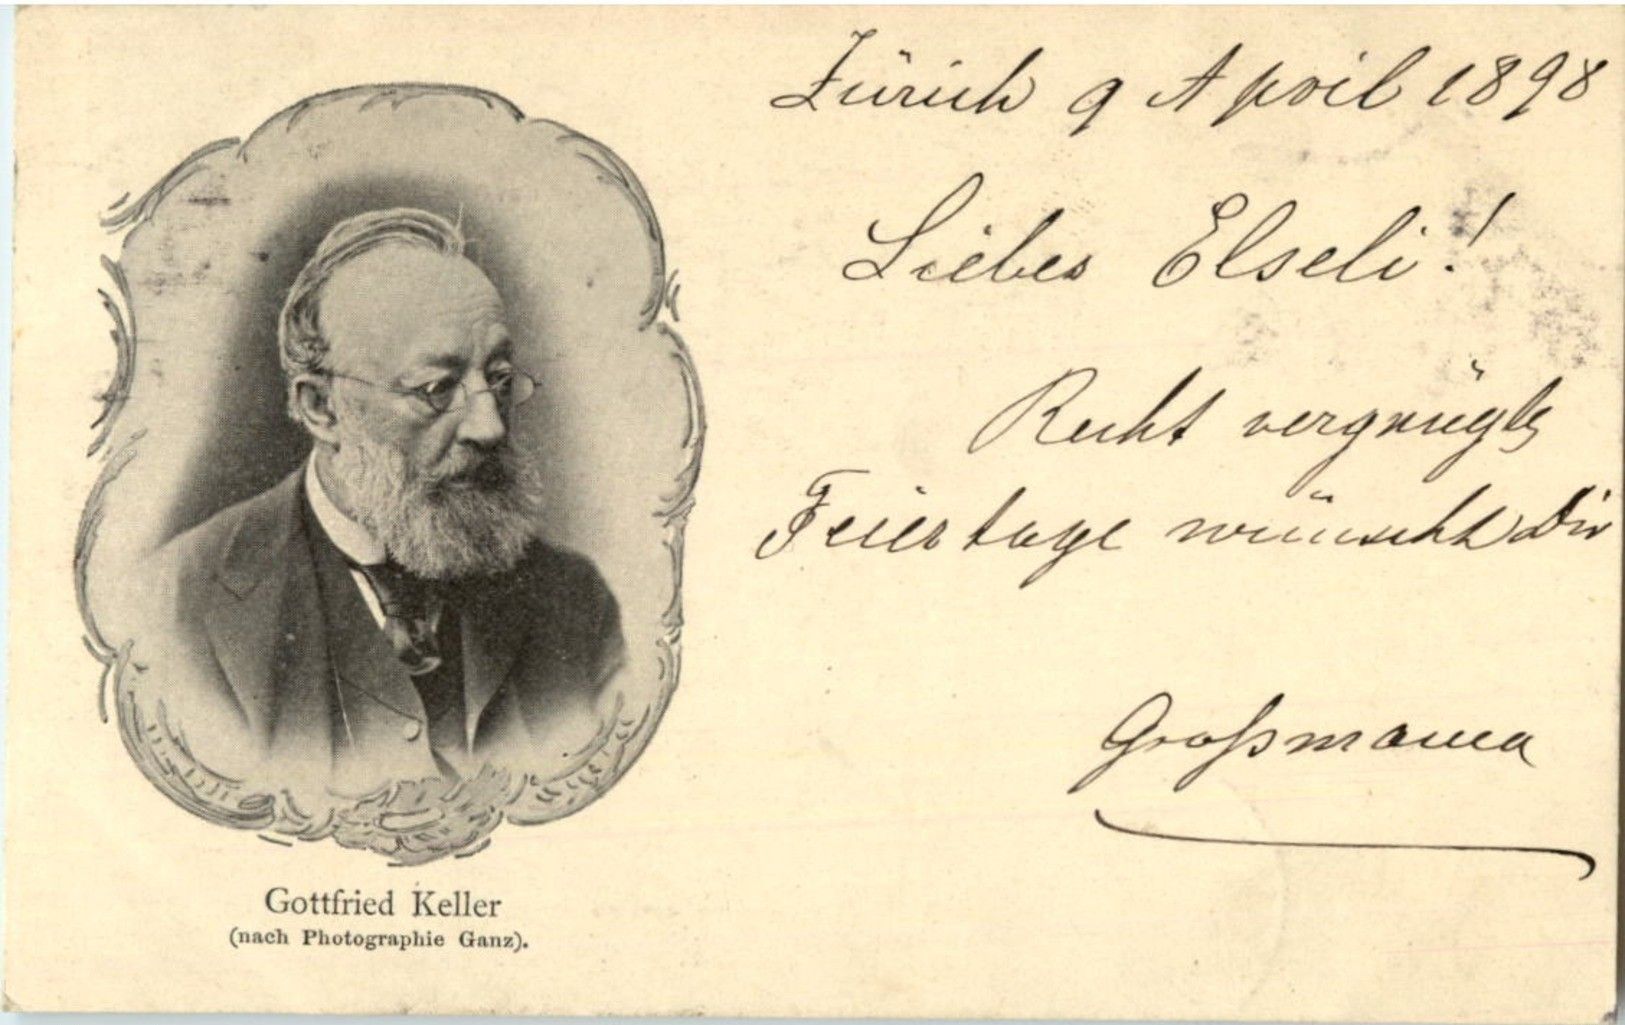 Zürich 9 April 1898
Liebes Elseli!
Recht vergnügte
Feiertage wünscht Dir
Großmama
Gottfried Keller
(nach Photographie Ganz).